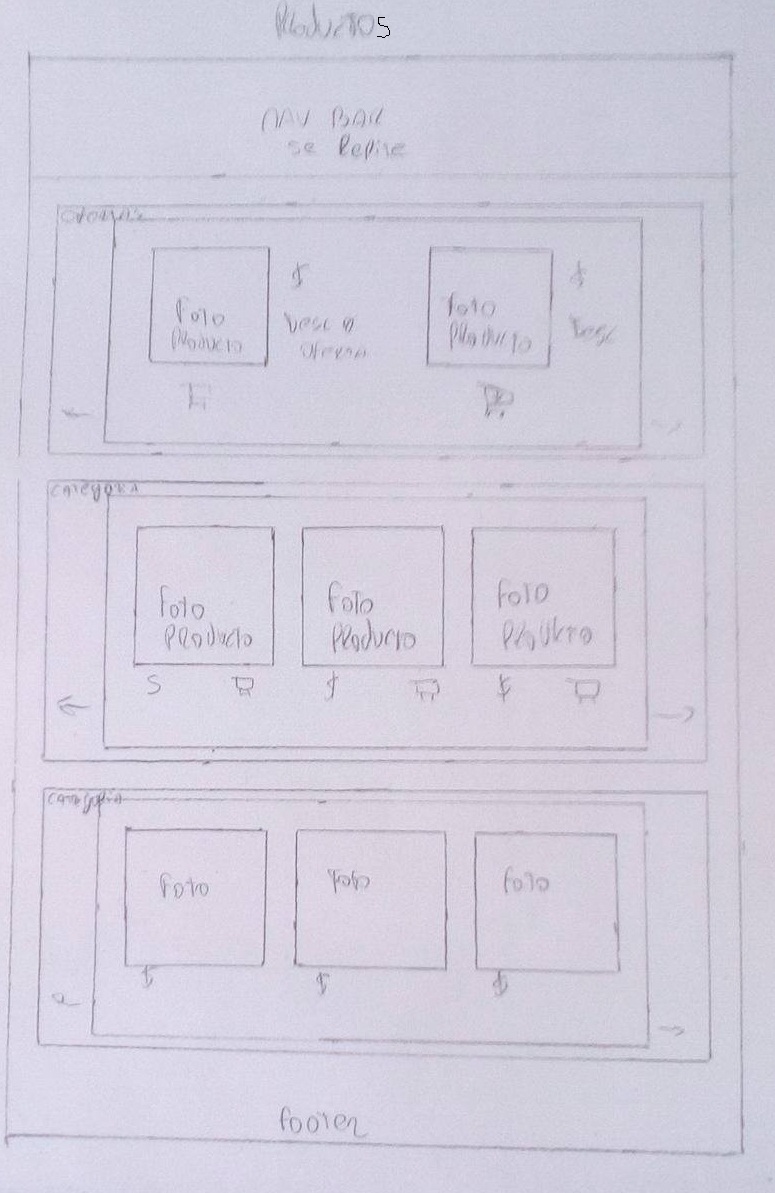 Productos
NAV BAR
se Repite
Ofertas
Foto
Producto
$
Desc o
oferta
Foto
Producto
$
Desc
categoria
Foto
Producto
Foto
Producto
Foto
Producto
S
$
$
categoria
Foto
Foto
Foto
$
$
$
footer